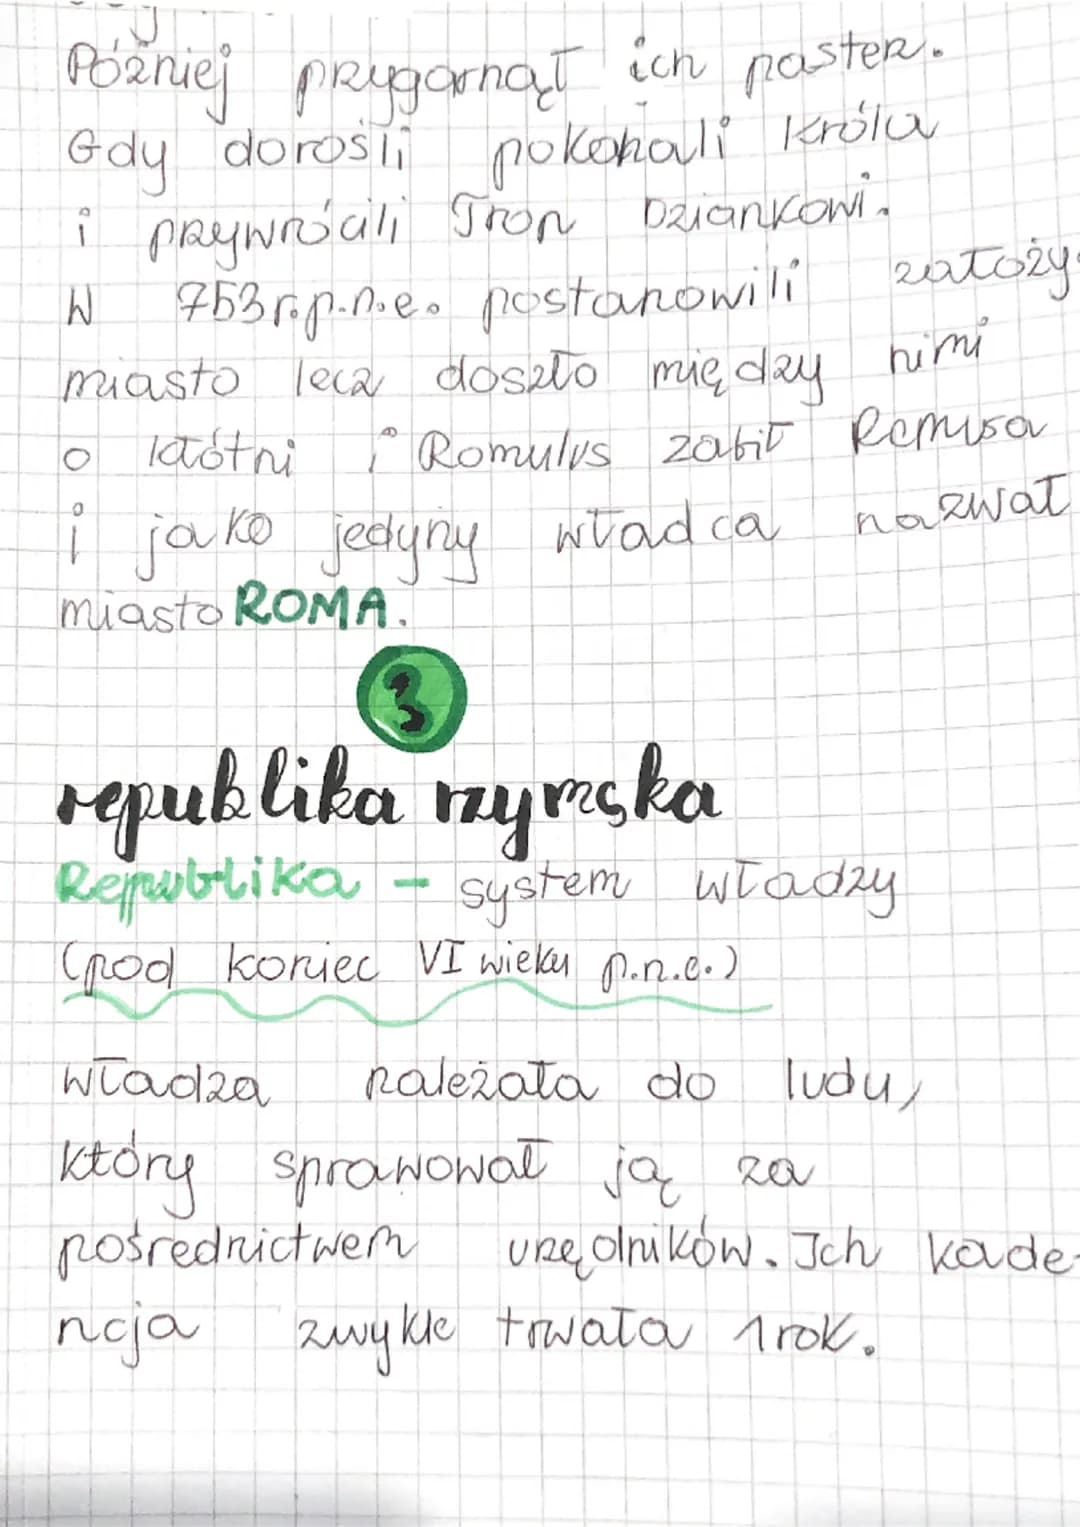 Później przygarnął ich pasterz.
Gdy dorośli pokonali króla
i przywrócili Tron Dziankowi.
W 753 r.p.n.e. postanowili założy
miasto lecz doszło między nimi
o kłótni i Romulus zabił Remusa
i jako jedyny władca nazwał
miasto ROMA.
3
republika rzymska
Republika - system władzy
(pod koniec VI wieku p.n.e.)
władza należała do ludu,
który sprawował ją za
pośrednictwem urzędników. Ich kade-
ncja zwykle trwała 1 rok.